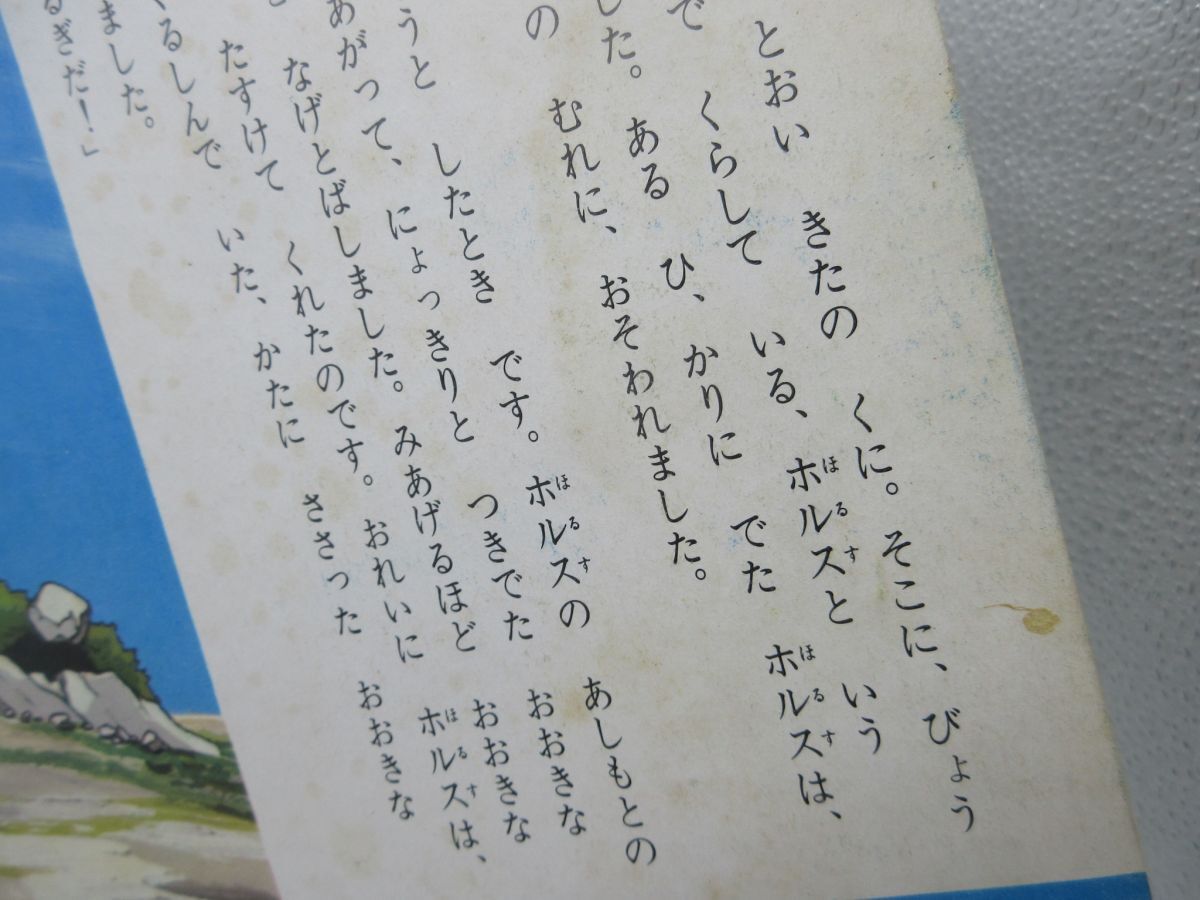 とおい きたの くに。そこに、びょう
で くらして いる、ホルスと いう
ほるす
した。ある ひ、かりに でた ホルスは、
ほるす
の むれに、おそわれました。
うと したとき です。ホルスの あしもとの
ほるす
あがって、にょっきりと つきでた おおきな
なげとばしました。みあげるほど おおきな
たすけて くれたのです。おれいに ホルスは、
ほるす
るしんで いた、かたに ささった おおきな
ました。
ぎだ!」